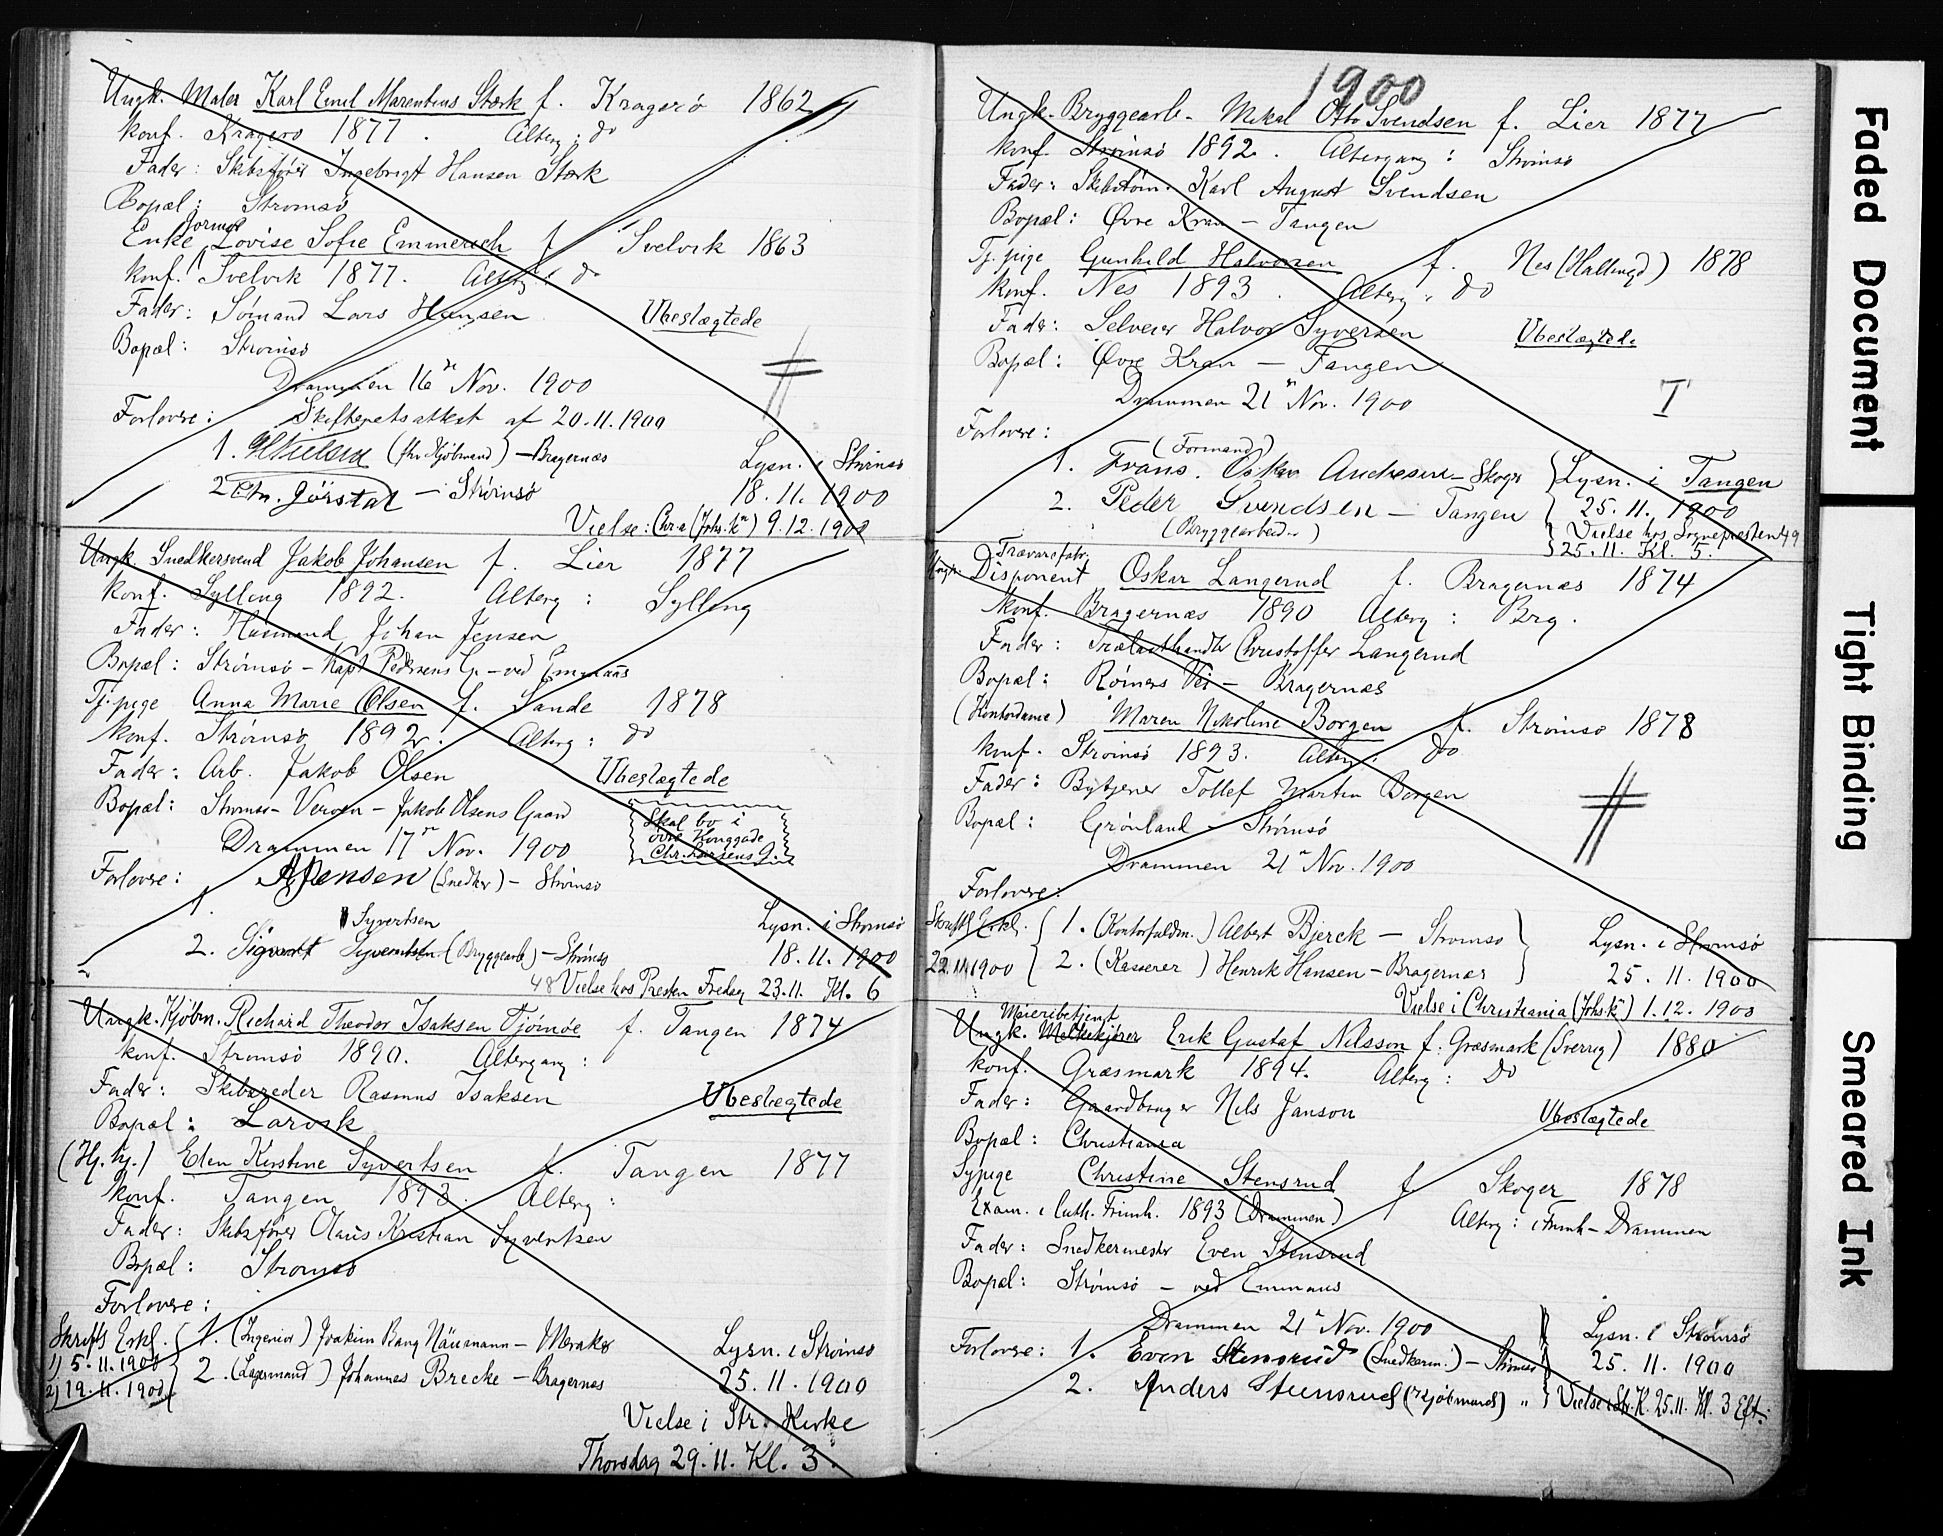 Ungk. Maler Karl Emil Marentius Stærk f. Kragerø 1862
konf. Kragerø 1877. Alterg: do
Fader: Skibsfører Ingebrigt Hansen Stærk
Bopæl: Strømsø
Enke Lovise Sofie Emmerich f. Svelvik 1863
konf. Svelvik 1877. Alterg: do
Fader: Sømand Lars Hansen
Ubeslægtede
Bopæl: Strømsø
Drammen 16de Nov. 1900
Forlovere: Skifteretsattest af 20.11.1900
1. (Kjøbmand) – Bragernæs
Lysn. i Strømsø
2. Chr. Jørstad – Strømsø
18.11.1900
Vielse: Chr.a (Johs. K.) 9.12.1900
Ungk. Snedkersvend Jakob Johansen f. Lier 1877
konf. Sylling 1892. Alterg: Sylling
Fader: Husmand Johan Jensen
Bopæl: Strømsø – Kapt Pedersens G. – ved Emmaus
Tj.pige Anna Marie Olsen f. Sande 1878
konf. Strømsø 1892. Alterg: do
Fader: Arb. Jakob Olsen
Ubeslægtede
Bopæl: Strømsø – Jakob Olsens Gaard
Skal bo i
øvre Konggade
Chr. Larsens G.
Drammen 17de Nov. 1900
Forlovere:
1. Jensen (Snedker) – Strømsø
Syvertsen
Lysn. i Strømsø
2. Sigvart Syvertsen (Bryggearb) – Strømsø
18.11.1900
48 Vielse hos Presten Fredag 23.11. Kl. 6
Ungk. Kjøbm. Richard Theodor Isaksen Tjømøe f. Tangen 1874
konf. Strømsø 1890. Altergang:
Fader: Skibsreder Rasmus Isaksen
Ubeslægtede
Bopæl: Larvik
(Hj. hj.) Elen Kirstine Syvertsen f. Tangen 1877
konf. Tangen 1893. Alterg:
Fader: Skibsfører Olaus Kristian Syvertsen
Bopæl: Strømsø
Forlovere:
Skriftl. Erkl.
1) 5.11.1900
2) 19.11.1900
1. (Ingeniør) Joakim Bang Näumann – Meraker
Lysn. i Strømsø
2. (Lagermand) Johannes Brecke – Bragernæs
25.11.1900
Vielse i Str. Kirke
Thorsdag 29.11. Kl. 3.
1900
Ungk. Bryggearb. Mikal Otto Svendsen f. Lier 1877
konf. Strømsø 1892. Altergang: Strømsø
Fader: Skibstøm. Karl August Svendsen
Bopæl: Øvre Kran – Tangen
Tj. pige Gunhild Halvorsen f. Nes (Hallingd) 1878
konf. Nes 1893. Alterg: do
Fader: Selveier Halvor Syversen
Ubeslægtede
Bopæl: Øvre Kran – Tangen
Drammen 21de Nov. 1900
T
Forlovere:
(Formand)
1. Frans Oskar Andresen – Skoger
Lysn. i Tangen
2. Peder Svendsen – Tangen
25.11.1900
(Bryggearbeid.)
Vielse hos Sognepresten 49
25.11. Kl. 5.
Trævarefabr.
Ungk. Disponent Oskar Langerud f. Bragernæs 1874
konf. Bragernæs 1890 Alterg: Brg.
Fader: Trælasthandler Christoffer Langerud
Bopæl: Rømers Vei – Bragernæs
(Kontordame) Maren Nikoline Borgen f. Strømsø 1878
konf. Strømsø 1893. Alterg: do
Fader: Bytjener Tollef Martin Borgen
Bopæl: Grønland – Strømsø
Drammen 21de Nov. 1900
Forlovere:
Skriftl. Erkl.
22.11.1900
1. (Kontorfuldm.) Albert Bjerck – Strømsø
Lysn. i Strømsø
2. (Kasserer) Henrik Hansen – Bragernæs
25.11.1900
Vielse i Christiania (Johs. K.) 1.12.1900
Meieribetjent
Ungk. Melkekjører Erik Gustaf Nilsson f. Græsmark (Sverrig) 1880
konf. Græsmark 1894. Alterg: do
Fader: Gaardbruger Nils Janson
Ubeslægtede
Bopæl: Christiania
Sypige Christine Stensrud f. Skoger 1878
Exam. i luth. Frimh. 1893 (Drammen) Alterg: i Frimh – Drammen
Fader: Snedkermester Even Stensrud
Bopæl: Strømsø – ved Emmaus
Drammen 21de Nov. 1900
Lysn. i Strømsø
Forlovere: 1. Even Stensrud (Snedkerm.) – Strømsø
25.11.1900
2. Anders Steensrud (Kjøbmand) "
Vielse i Str. K. 25.11. Kl. 3 Eft.
Faded Document
Tight Binding
Smeared Ink